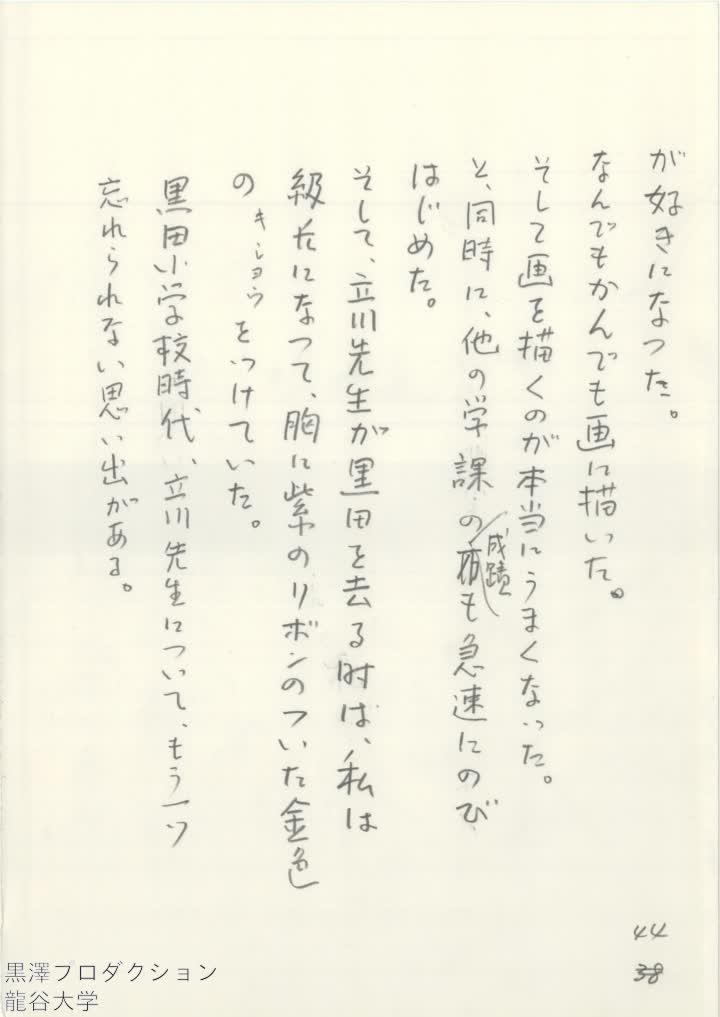 が好きになつた。
なんでもかんでも画に描いた。
そして画を描くのが本当にうまくなった。
と、同時に、他の学課の成蹟も急速にのび
はじめた。
そして、立川先生が黒田を去る時は、私は
級長になつて、胸に紫のリボンのついた金色
のキショウをつけていた。
黒田小学校時代、立川先生について、もう一つ
忘れられない思い出がある。
44
38
黒澤プロダクション
龍谷大学